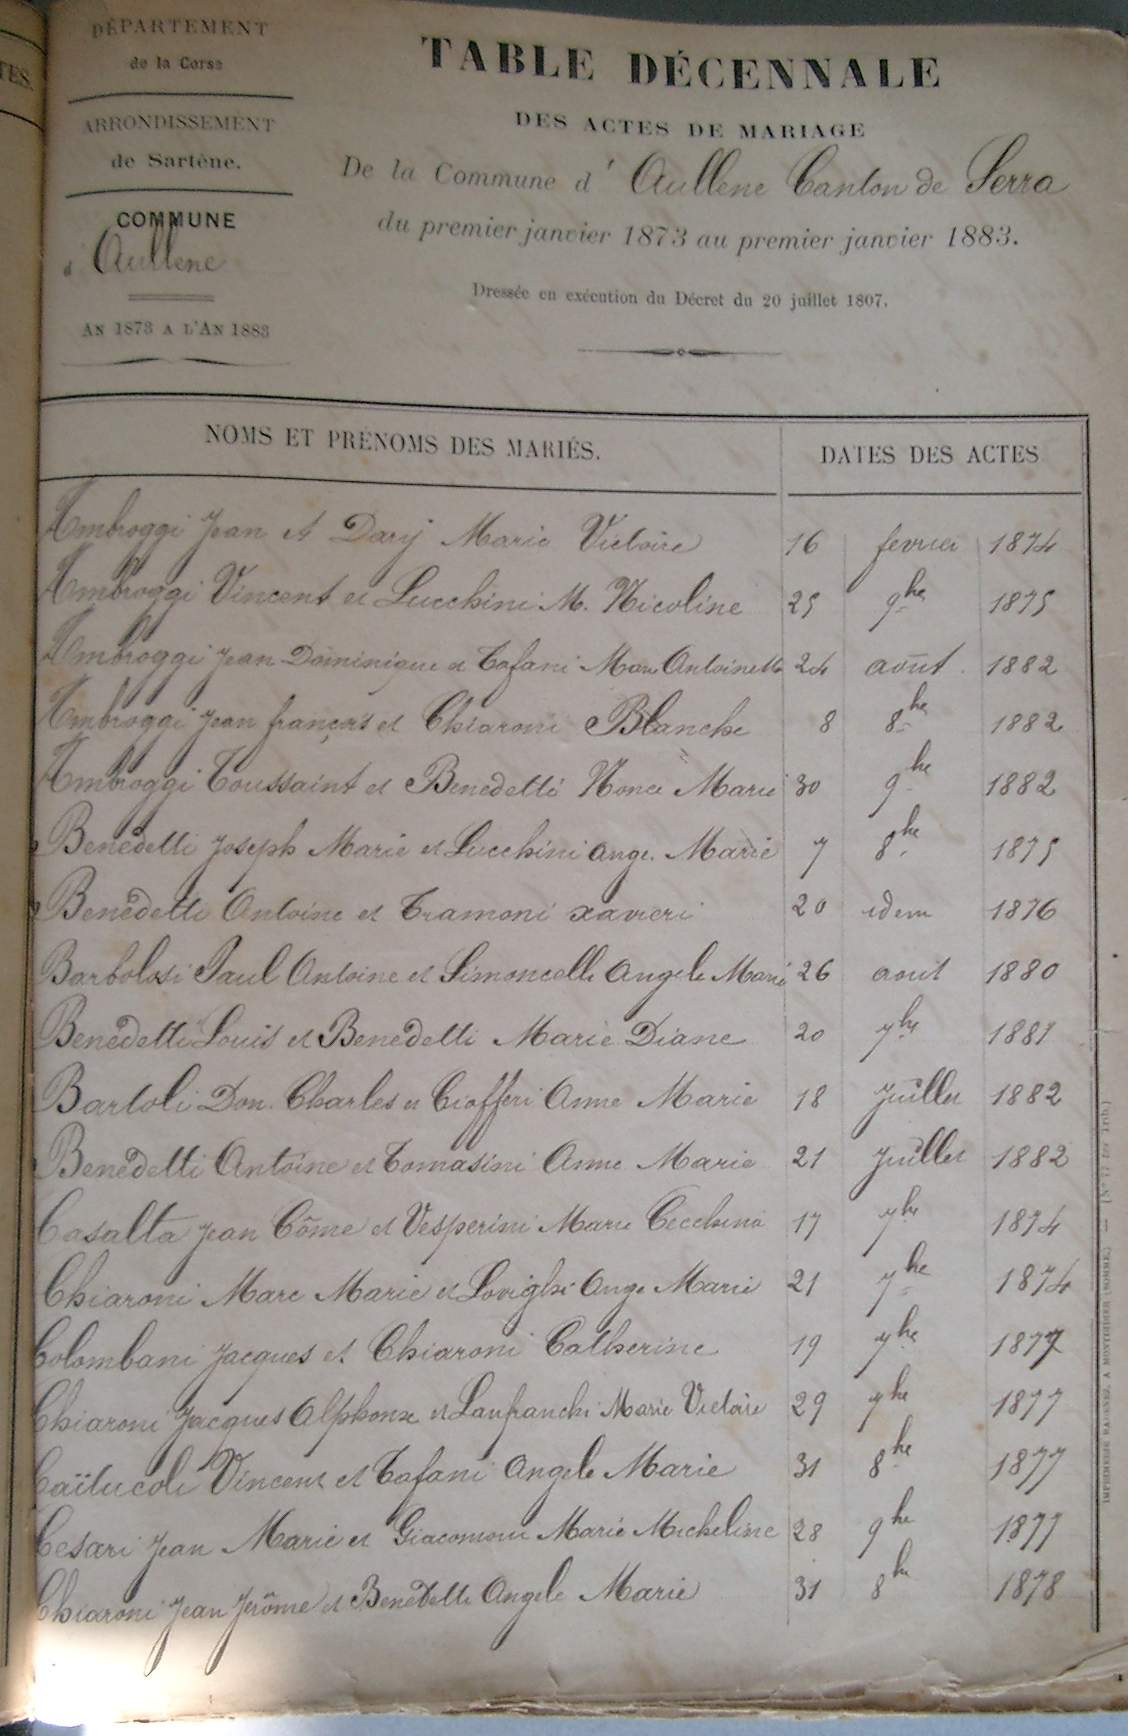 TES.
DÉPARTEMENT
de la Corse
ARRONDISSEMENT
de Sartène.
COMMUNE
d'Aullene
AN 1873 A L'AN 1883
TABLE DÉCENNALE
DES ACTES DE MARIAGE
De la Commune d'Aullene Canton de Serra
du premier janvier 1873 au premier janvier 1883.
Dressée en exécution du Décret du 20 juillet 1807.
NOMS ET PRÉNOMS DES MARIÉS. DATES DES ACTES
Ambroggi Jean et Dary Marie Victoire 16 fevrier 1874
Ambroggi Vincent et Lucchini M. Nicoline 25 9bre 1875
Ambroggi Jean Dominique et Tafani Marie Antoinette 24 août 1882
Ambroggi Jean françois et Chiaroni Blanche 8 8bre 1882
Ambroggi Toussaint et Benedetti Nonce Marie 30 9bre 1882
Benedetti Joseph Marie et Lucchini Ange Marie 7 8bre 1875
Benedetti Antoine et Tramoni xavieri 20 idem 1876
Barbolosi Paul Antoine et Simoncelli Angele Marie 26 aout 1880
Benedetti Louis et Benedetti Marie Diane 20 7bre 1881
Bartoli Don Charles et Cioffieri Anne Marie 18 Juillet 1882
Benedetti Antoine et Tomasini Anne Marie 21 Juillet 1882
Casalta Jean Côme et Vesperini Marie Cecchina 17 7bre 1874
Chiaroni Marc Marie et Lovighi Ange Marie 21 7bre 1874
Colombani Jacques et Chiaroni Catherine 19 7bre 1877
Chiaroni Jacques Alphonse et Lanfranchi Marie Victoire 29 7bre 1877
Caïtucoli Vincent et Tafani Angele Marie 31 8bre 1877
Cesari Jean Marie et Giacomoni Marie Micheline 28 9bre 1877
Chiaroni Jean Jerôme et Benedetti Angele Marie 31 8bre 1878